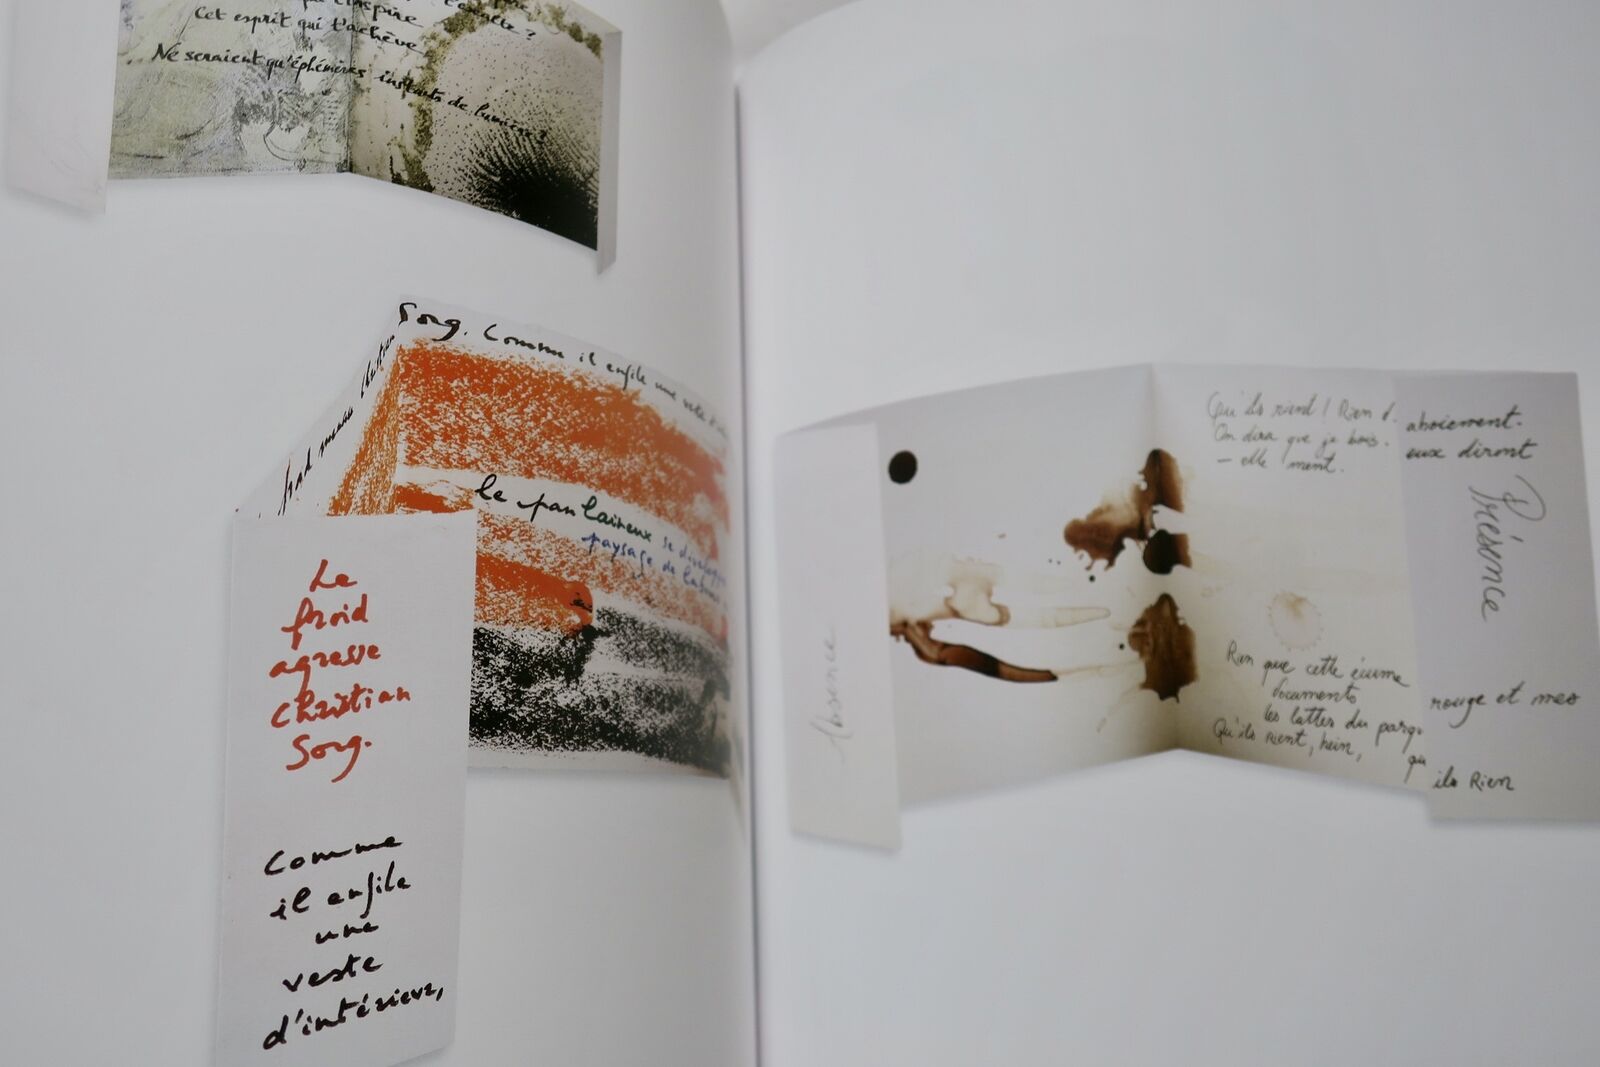 l'inspire
Cet esprit qui t'achève
Ne seraient qu'éphémères instants de lumière ?
Christian
Sorg. Comme il enfile une veste
le pan laineux se
paysage de
Le
froid
agresse
Christian
Sorg.
Comme
il enfile
une
veste
d'intérieur,
Absence
Qu'ils rient ! Rien d. aboiement.
On dira que je bois. eux diront
— elle ment.
Présence
Rien que cette écume rouge et mes
documents
les lattes du parqu
Qu'ils rient, hein, qu ils Rien